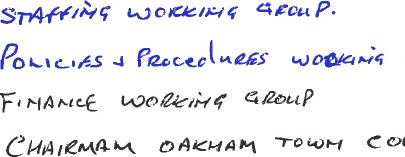 STAFFING WORKING GROUP.
POLICIES & PROCEDURES WORKING
FINANCE WORKING GROUP
CHAIRMAM OAKHAM TOWN CO